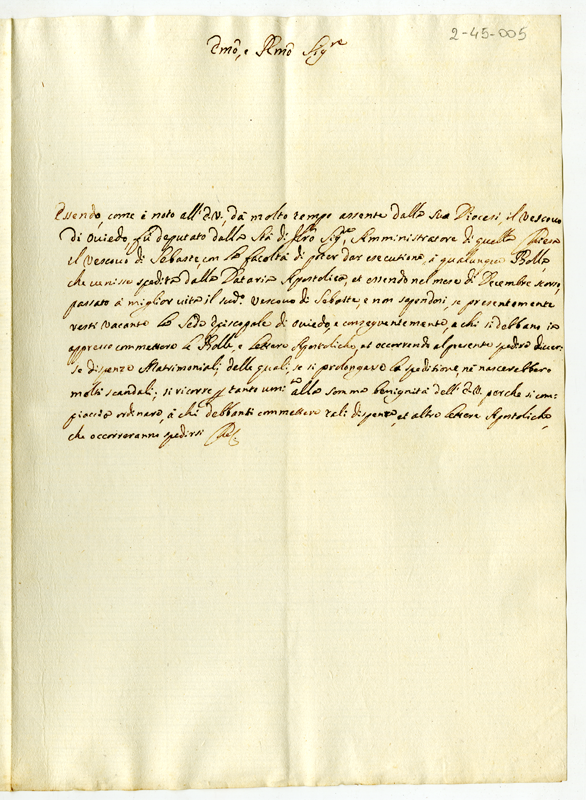 2-45-005
Emo, e Rmo Sigre
Essendo, come è noto all'E.V., da molto tempo assente dalla sua Diocesi, il Vescovo
di Oviedo, fù deputato dalla Stà di Nro Sigre, Amministratore di quella Chiesa
il Vescovo di Sebaste, con la facoltà di poter dar esecutione, à qualunque Bolla,
che venisse spedita dalla Dataria Apostolica, et essendo nel mese di Decembre scorso
passato à miglior vita il sudo Vescovo di Sebaste, e non sapendosi, se presentemente
resti vacante la Sede Episcopale di Oviedo, e conseguentemente, a chi si debbano in
appresso commettere le Bolle, e lettere Apostoliche, et occorrendo al presente spedire diver-
se dispenze Matrimoniali, delle quali, se si prolongasse la speditione, ne nascerebbero
molti scandali; si ricorre per tanto umte alla somma benignità dell'E.V. perche si com-
piaccia ordinare, à chi debbonsi commettere tali dispenze, et altre lettere Apostoliche,
che occorreranno spedirsi Che